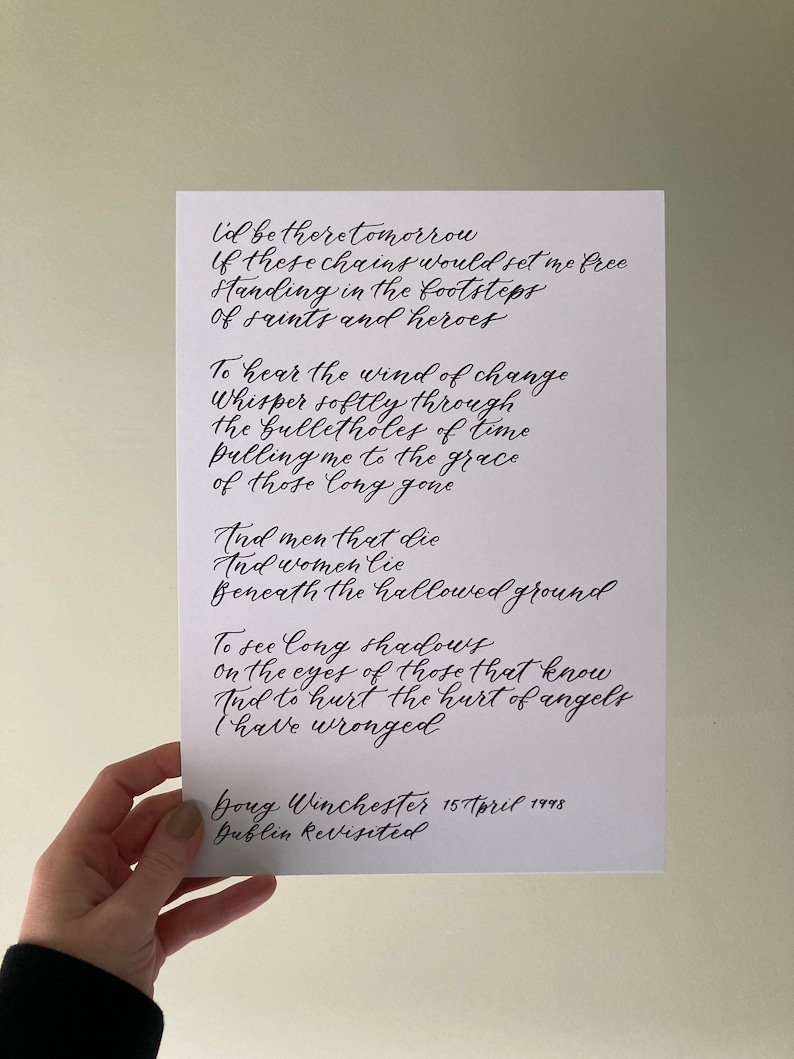 I'd be there tomorrow
If these chains would set me free
Standing in the footsteps
Of saints and heroes

To hear the wind of change
Whisper softly through
the bulletholes of time
Pulling me to the grace
of those long gone

And men that die
And women lie
Beneath the hallowed ground

To see long shadows
On the eyes of those that know
And to hurt the hurt of angels
I have wronged

Doug Winchester 15 April 1998
Dublin Revisited